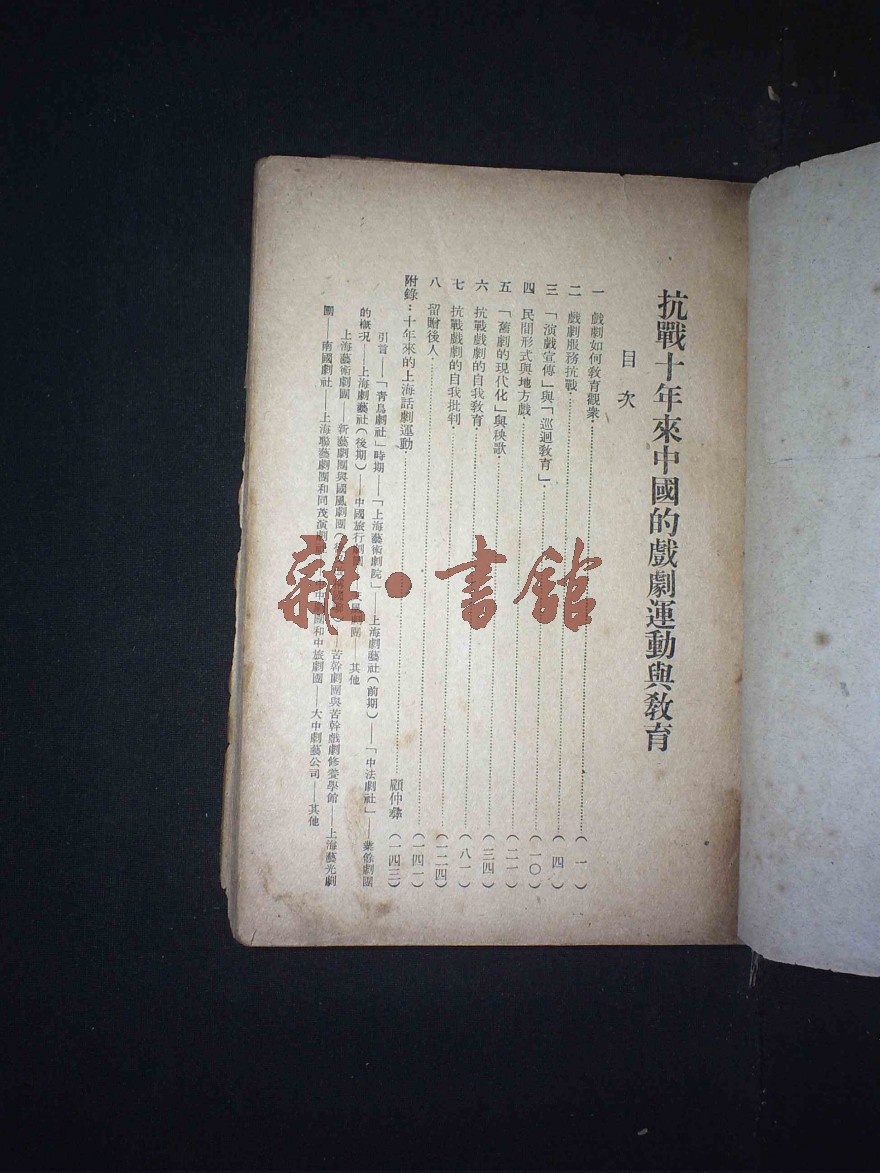 抗戰十年來中國的戲劇運動與敎育
目次
一 戲劇如何敎育觀衆·（一）
二 戲劇服務抗戰·（四）
三 「演戲宣傳」與「巡迴敎育」·（一〇）
四 民間形式與地方戲·（二一）
五 「舊劇的現代化」與秧歌·（三四）
六 抗戰戲劇的自我敎育（八一）
七 抗戰戲劇的自我批判·（一二四）
八 留贈後人（一四一）
附錄：十年來的上海話劇運動·顧仲彝（一四三）
引言——「靑鳥劇社」時期——「上海藝術劇院」——上海劇藝社（前期）——「中法劇社」——業餘劇團
的槪況——上海劇藝社（後期）——中國旅行劇團 風劇團——其他
上海藝術劇團——新藝劇團與國風劇團 ——苦幹劇團與苦幹戲劇修養學館——上海藝光劇
團——南國劇社——上海聯藝劇團和同茂演劇 中 團和中旅劇團——大中劇藝公司——其他
雜·書館